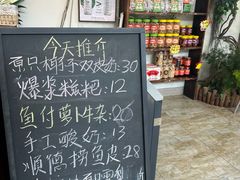 今天推介
原只椰子双皮奶:30
爆浆糍粑:12
鱼付萝卜牛杂:26
手工酸奶:13
顺德捞鱼皮:28